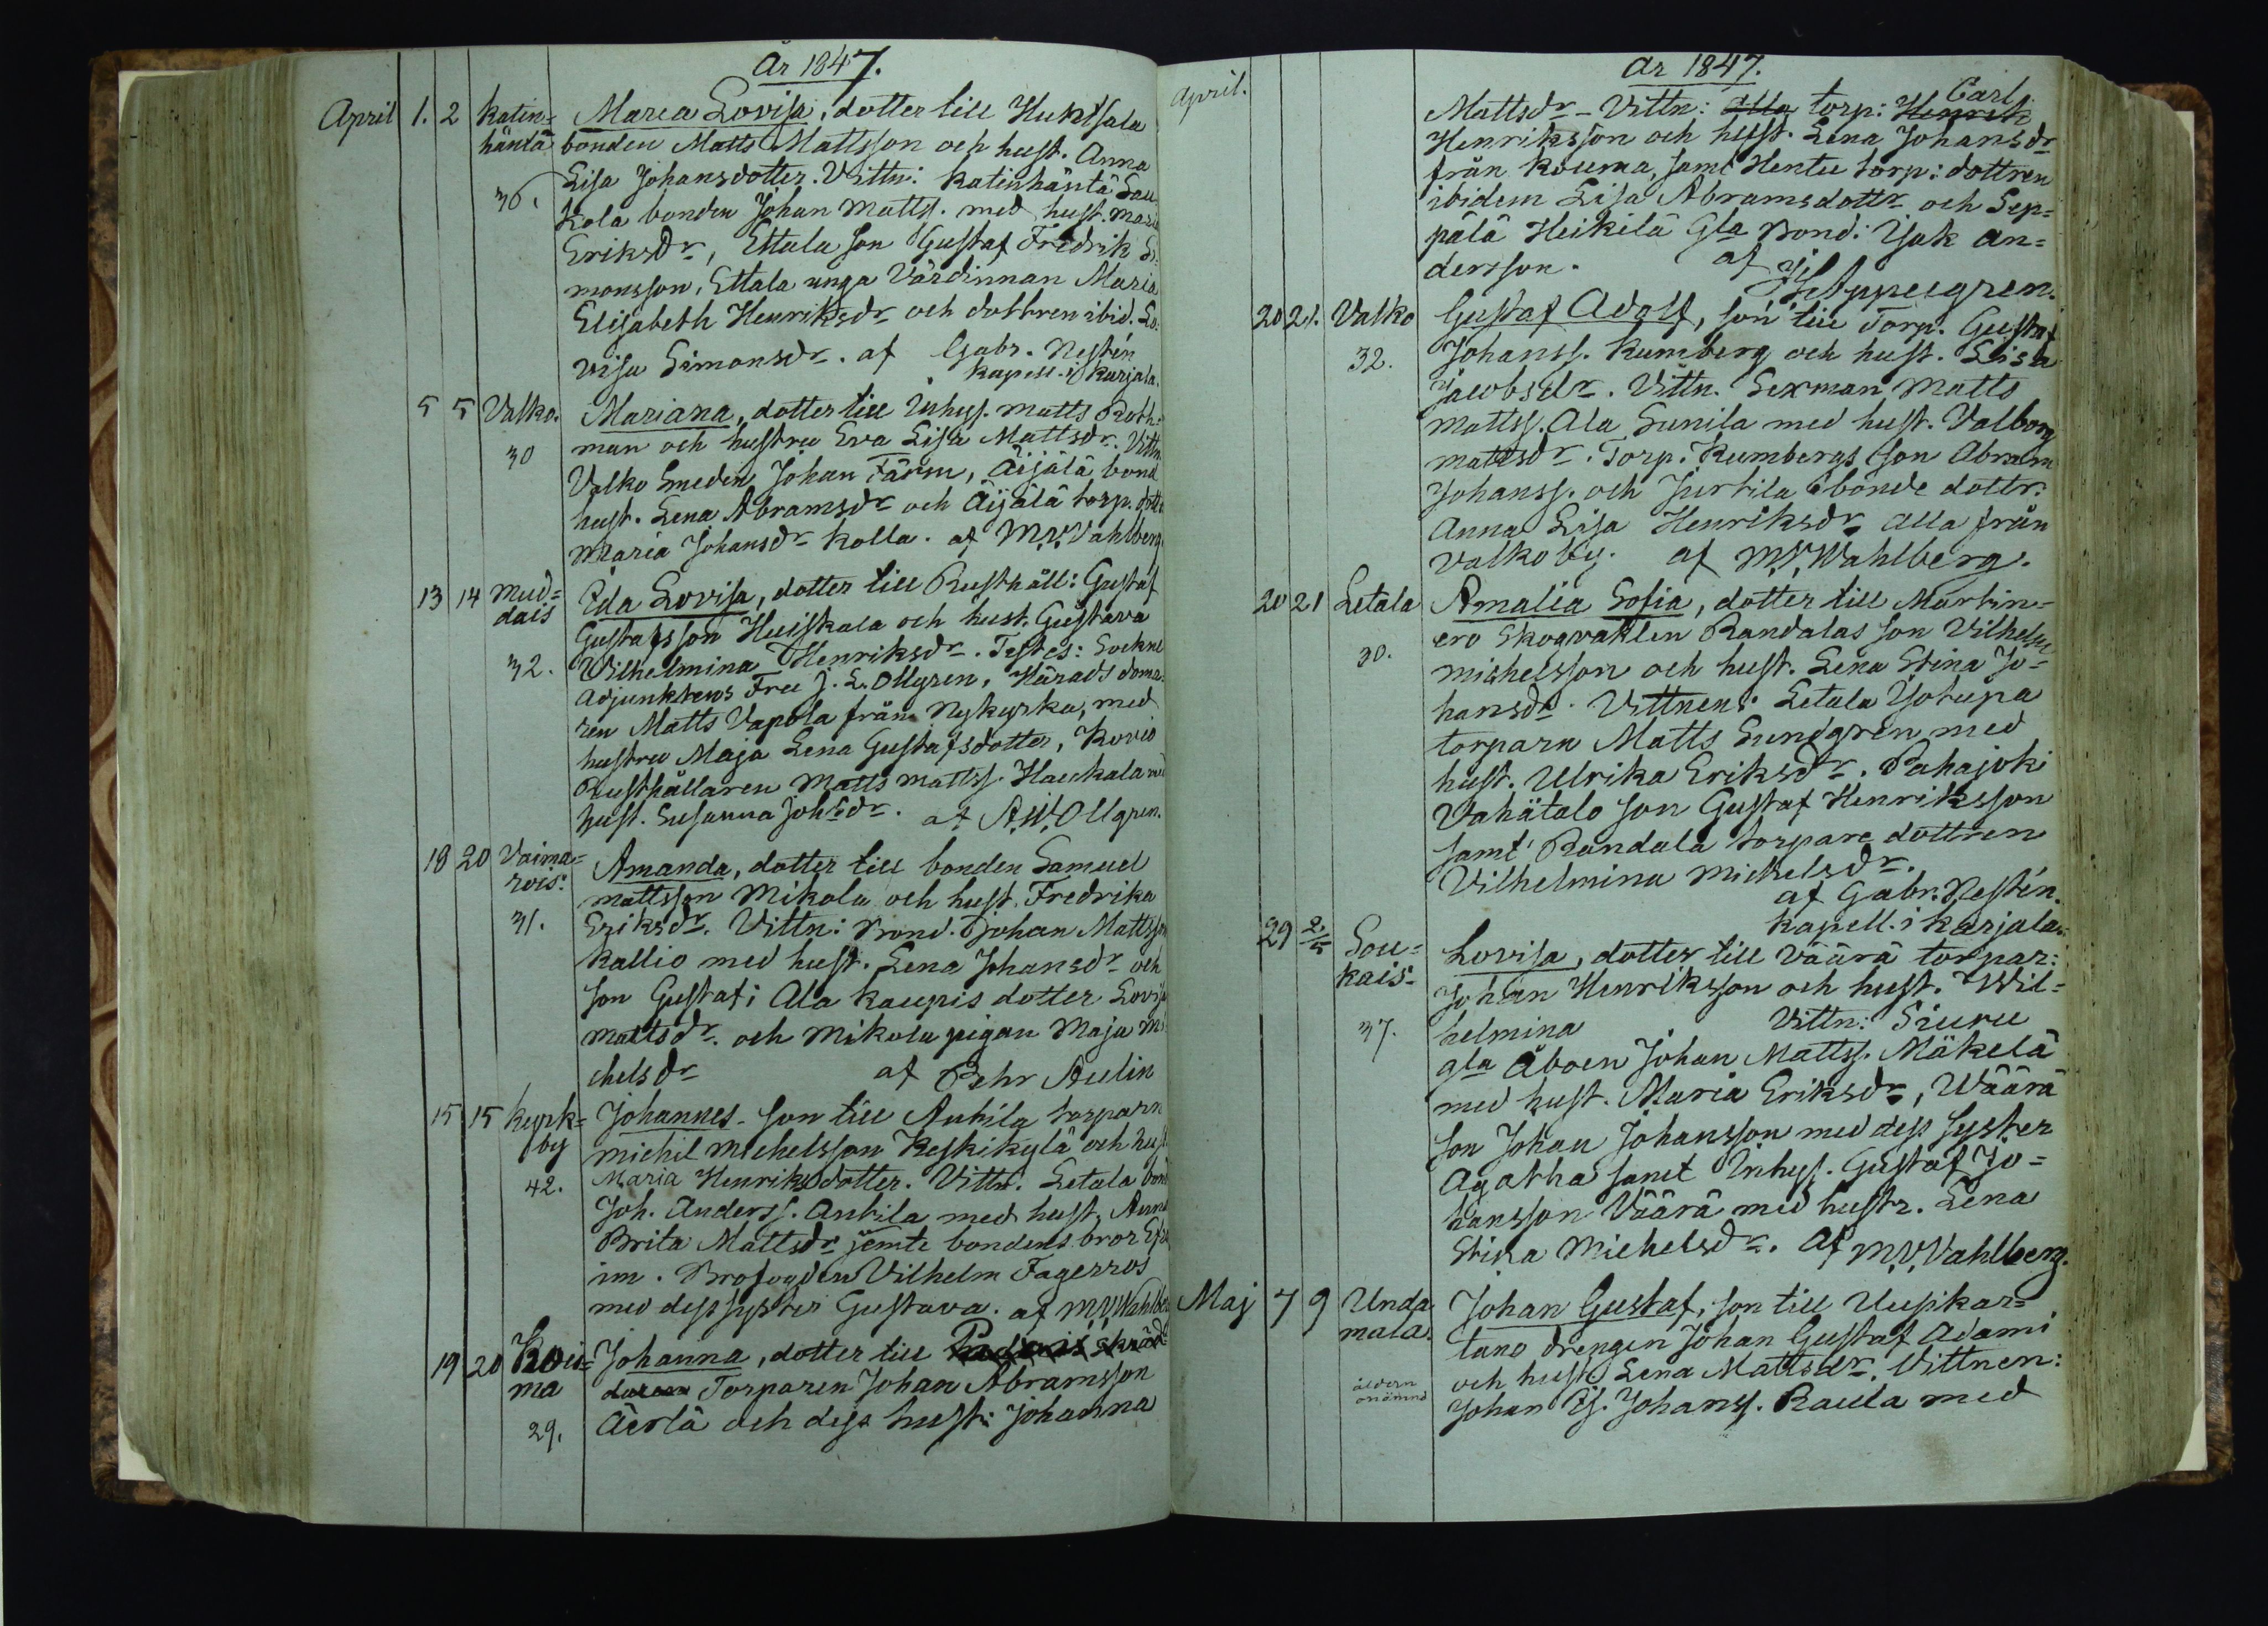 År 1847.
April 1. 2 Katin= Maria Lovisa, dotter till Huktsala
häntä bonden Matts Mattsson och hust. Anna
Lisa Johansdotter. Vittn: Katinhäntä Sau
36. kola bonden Johan Matts. med hust. Maria
Eriksdr, Ettala son Gustaf Fredrik Si:
monsson, Ettala unga Värdinnan Maria
Elisabeth Henriksdr och dottren ibid. Lo:
visa Simonsdr. af Gabr. Nestén
kapell. i Karjala.
5 5 Valko. Mariana, dotter till Inhys. Matts Roth:
30 man och hustru Eva Lisa Mattsdr. Vittn
Valko Smeden Johan Färm, Äijälä bond
hust. Lena Abramsdr och Äijälä torp. dott
Maria Johansdr Kolla. af M.V. Vahlberg.
13 14 Mud= Eda Lovisa, dotter till Rusthåll: Gustaf
dais Gustafsson Huiskala och hust. Gustava
32. Wilhelmina Henriksdr. Testes: Sockne
Adjunktens Fru J. L. Ollgren, Härads doma:
ren Matts Vapola från Nykyrka, med
hustru Maja Lena Gustafsdotter, Kovio
Rusthållaren Matts Mattss. Haukala med
hust. Susanna Johsdr. af A.W. Ollgren.
18 20 Vaima= Amanda, dotter till bonden Samuel
rois: Mattsson Mikola och hust. Fredrika
31. Eriksdr. Vittn: Bond. Johan Mattsson
Kallio med hust. Lena Johansdr och
son Gustaf; Ala Kaupis dotter Lovisa
Mattsdr. och Mikola pigan Maja Mi
chelsdr af Pehr Aulin
15 15 Kyrk= Johannes. son till Antila torparn
by Michil Michelsson Keskikylä och hust
42. Maria Henriksdotter. Vittn. Letala bond
Joh. Anderss. Antila med hust. Anna
Brita Mattsdr jemte bondens bror Efra
im. Brofogden Vilhelm Fagerros
med dess syster Gustava. af M.V. Wahlberg
19 20 Kou= Johanna, dotter till skräd
ma Torparen Johan Abramsson
29. Äerlä och dess hust: Johanna
April. År 1847.
Carl
Mattsdr - Vittn: alla torp: Henrik
Henriksson och hust. Lena Johansdr
från Kouma, samt Hentu torp: dottren
ibidem Lisa Abramsdottr och Sep=
pälä Heikilä Gla Bond: Isak An=
dersson. af Appelgren.
20 21. Valko Gustaf Adolf, son till Torp. Gustaf
32. Johanss. Kumberg och hust. Lisa
Jacobsdr. Vittn. Sexman Matts
Mattss. Ala Sunila med hust. Valborg
Mattsdr. Torp. Kumbergs son Abram
Johanss. och Jurtila bonde dottr:
Anna Lisa Henriksdr alla från
Valko by. af M.V. Wahlberg.
20 21 Letala Amalia Sofia, dotter till Martin=
30. ero Skogvakten Randalas son Vilhelm
Michelsson och hust. Lena Stina Jo=
hansdr. Vittnen: Letala Yotupa
torparn Matts Sundgren med
hust. Ulrika Eriksdr. Pahajoki
Vahätalo son Gustaf Henriksson
samt Randala torpare dottren
Vilhelmina Michelsdr.
af Gabr. Nestén.
kapell. i Karjala.
29 2/5 Sou= Lovisa, dotter till Väärä torpar:
kais: Johan Henriksson och hust. Wil=
37. helmina Vittn: Siuru
gla Åboen Johan Mattss. Mäkelä
med hust. Maria Eriksdr, Wäärä
son Johan Johansson med dess syster
Agatha samt Inhys. Gustaf Jo=
hansson Väärä med hustr. Lena
Stina Michelsdr. Af M.V. Vahlberg.
Maj 7 9 Unda Johan Gustaf, son till Uusikar=
mala. tano drengen Johan Gustaf Adami
åldern och hust. Lena Mattsdr. Vittnen:
onämnd Johan Js. Johans. Raula med